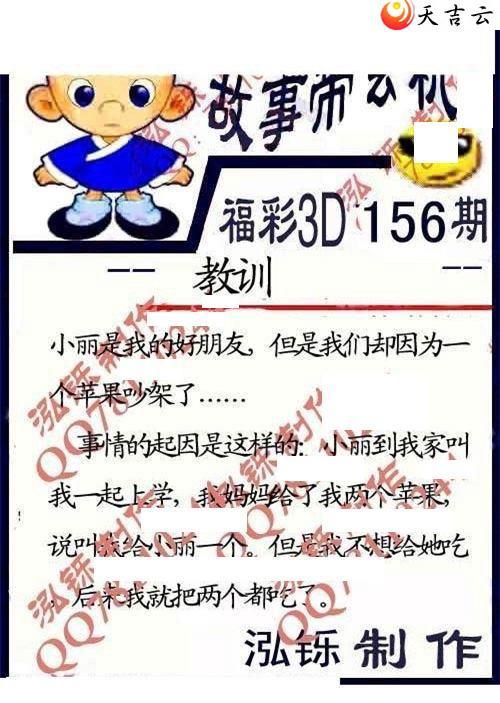 天吉云
故事师玄机
福彩3D 156期
教训
小丽是我的好朋友，但是我们却因为一
个苹果吵架了……
事情的起因是这样的：小丽到我家叫
我一起上学，我妈妈给了我两个苹果，
说叫我给小丽一个。但是我不想给她吃
，后来我就把两个都吃了。
泓铄制作